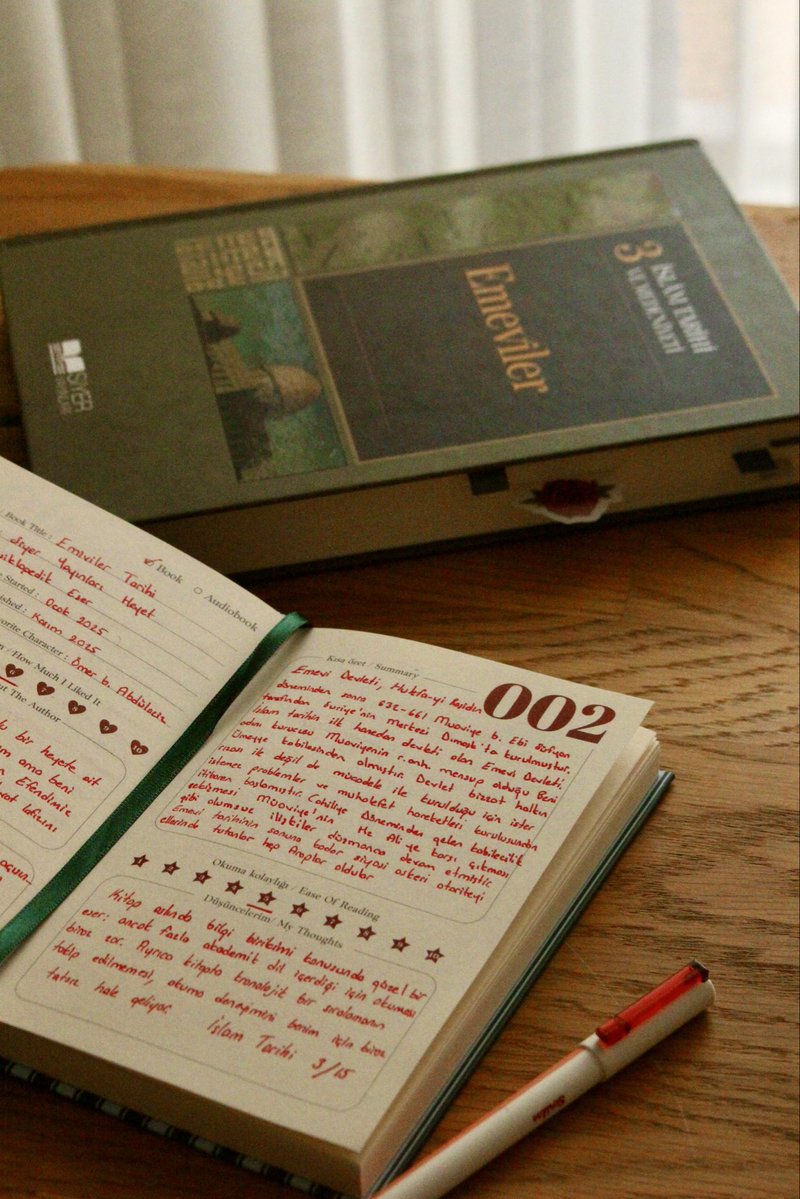 3 İSLÂM TARİHİ
VE MEDENİYETİ
Emeviler
SİYER
YAYINLARI
Book Title : Emeviler Tarihi
Book Audiobook
Siyer Yayınları Heyet
Eser
Started : Ocak 2025
Kasım 2025
Favorite Character : Ömer b. Abdülaziz
/How Much I Liked It
6 7 8 9 10
The Author
bir heyete ait
ama beni
Efendimiz
002
Kısa özet / Summary
Emevi Devleti, Hulefa-yi Raşidin
döneminden sonra 632-661 Muaviye b. Ebi Süfyan
tarafından Suriye'nin merkezi Dımaşk'ta kurulmuştur.
İslam tarihin ilk hanedan devleti olan Emevi Devleti,
adını kurucusu Muaviyenin r.anh. mensup olduğu Beni
Ümeyye kabilesinden almıştır. Devlet bizzat halkın
rızası ile değil de mücadele ile kurulduğu için ister
istemez problemler ve muhalefet hareketleri kuruluşundan
itibaren başlamıştır. Cahiliye Döneminden gelen kabilecilik
Muaviye'nin Hz Ali'ye karşı çıkması
gibi olumsuz ilişkiler düşmanca devam etmiştir.
Emevi tarihinin sonuna kadar siyasi askeri otoriteyi
ellerinde tutanlar hep Araplar oldular
Okuma kolaylığı / Ease Of Reading
1 2 3 4 5 6 7 8 9 10
Düşüncelerim/ My Thoughts
Kitap aslında bilgi birikimi konusunda güzel bir
eser; ancak fazla akademik dil içerdiği için okuması
biraz zor. Ayrıca kitapta kronolojik bir sıralamanın
takip edilmemesi, okuma deneyimini benim için biraz
hale geliyor.
İslam Tarihi 3/15